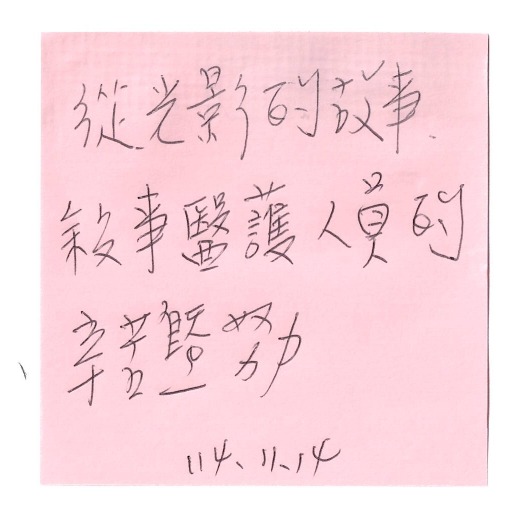 從光影的故事、
敘事醫護人員的
辛苦暨努力
114.11.14